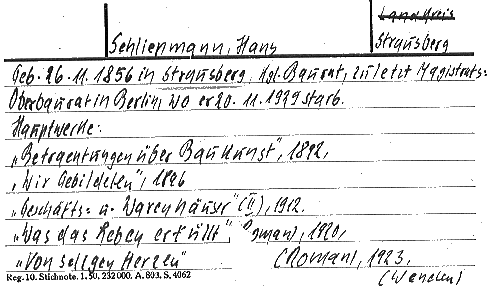 Landkreis
Schliepmann, Hans Strausberg
Geb. 26.11.1856 in Strausberg, Kgl. Baurat, zuletzt Magistrats-
Oberbaurat in Berlin, wo er 20.11.1929 starb.
Hauptwerke:
„Betrachtungen über Baukunst", 1892,
„Wir Gebildeten", 1896
„Geschäfts- u. Warenhäuser" (II), 1912.
„Was das Leben erfüllt", Roman, 1920,
„Von seligen Herzen" (Roman), 1923,
Reg. 10. Stichnote. 1. 50. 232000. A. 803. S. 4062